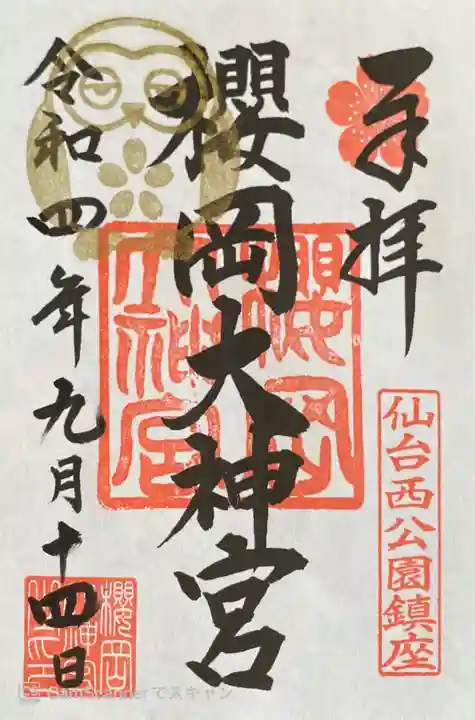 奉拝
仙台西公園鎮座
櫻岡大神宮
櫻岡大神宮
令和四年九月十四日
CamScannerでスキャン